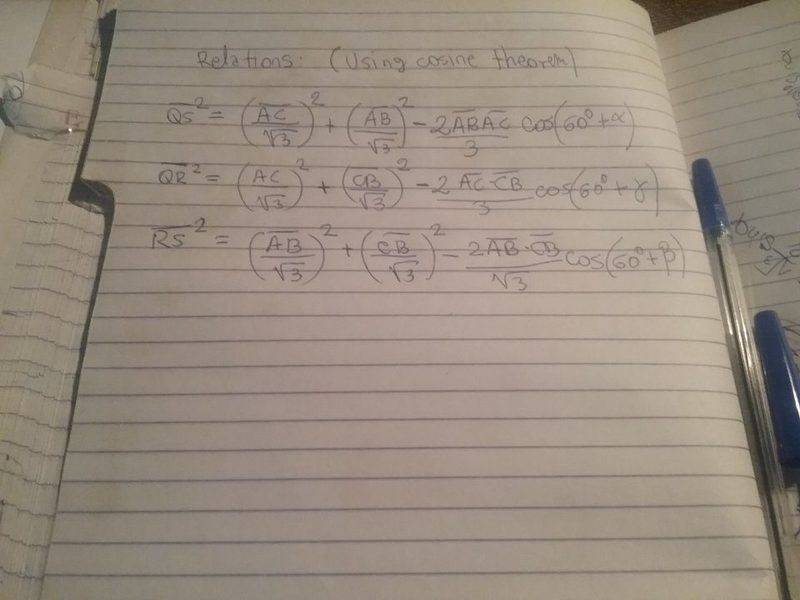 Relations: (Using cosine theorem)
Q̅S̅² = (A̅C̅/√3)² + (A̅B̅/√3)² - 2A̅B̅A̅C̅/3 cos(60° + α)
Q̅R̅² = (A̅C̅/√3)² + (C̅B̅/√3)² - 2A̅C̅·C̅B̅/3 cos(60° + γ)
R̅S̅² = (A̅B̅/√3)² + (C̅B̅/√3)² - 2A̅B̅·C̅B̅/√3 cos(60° + β)